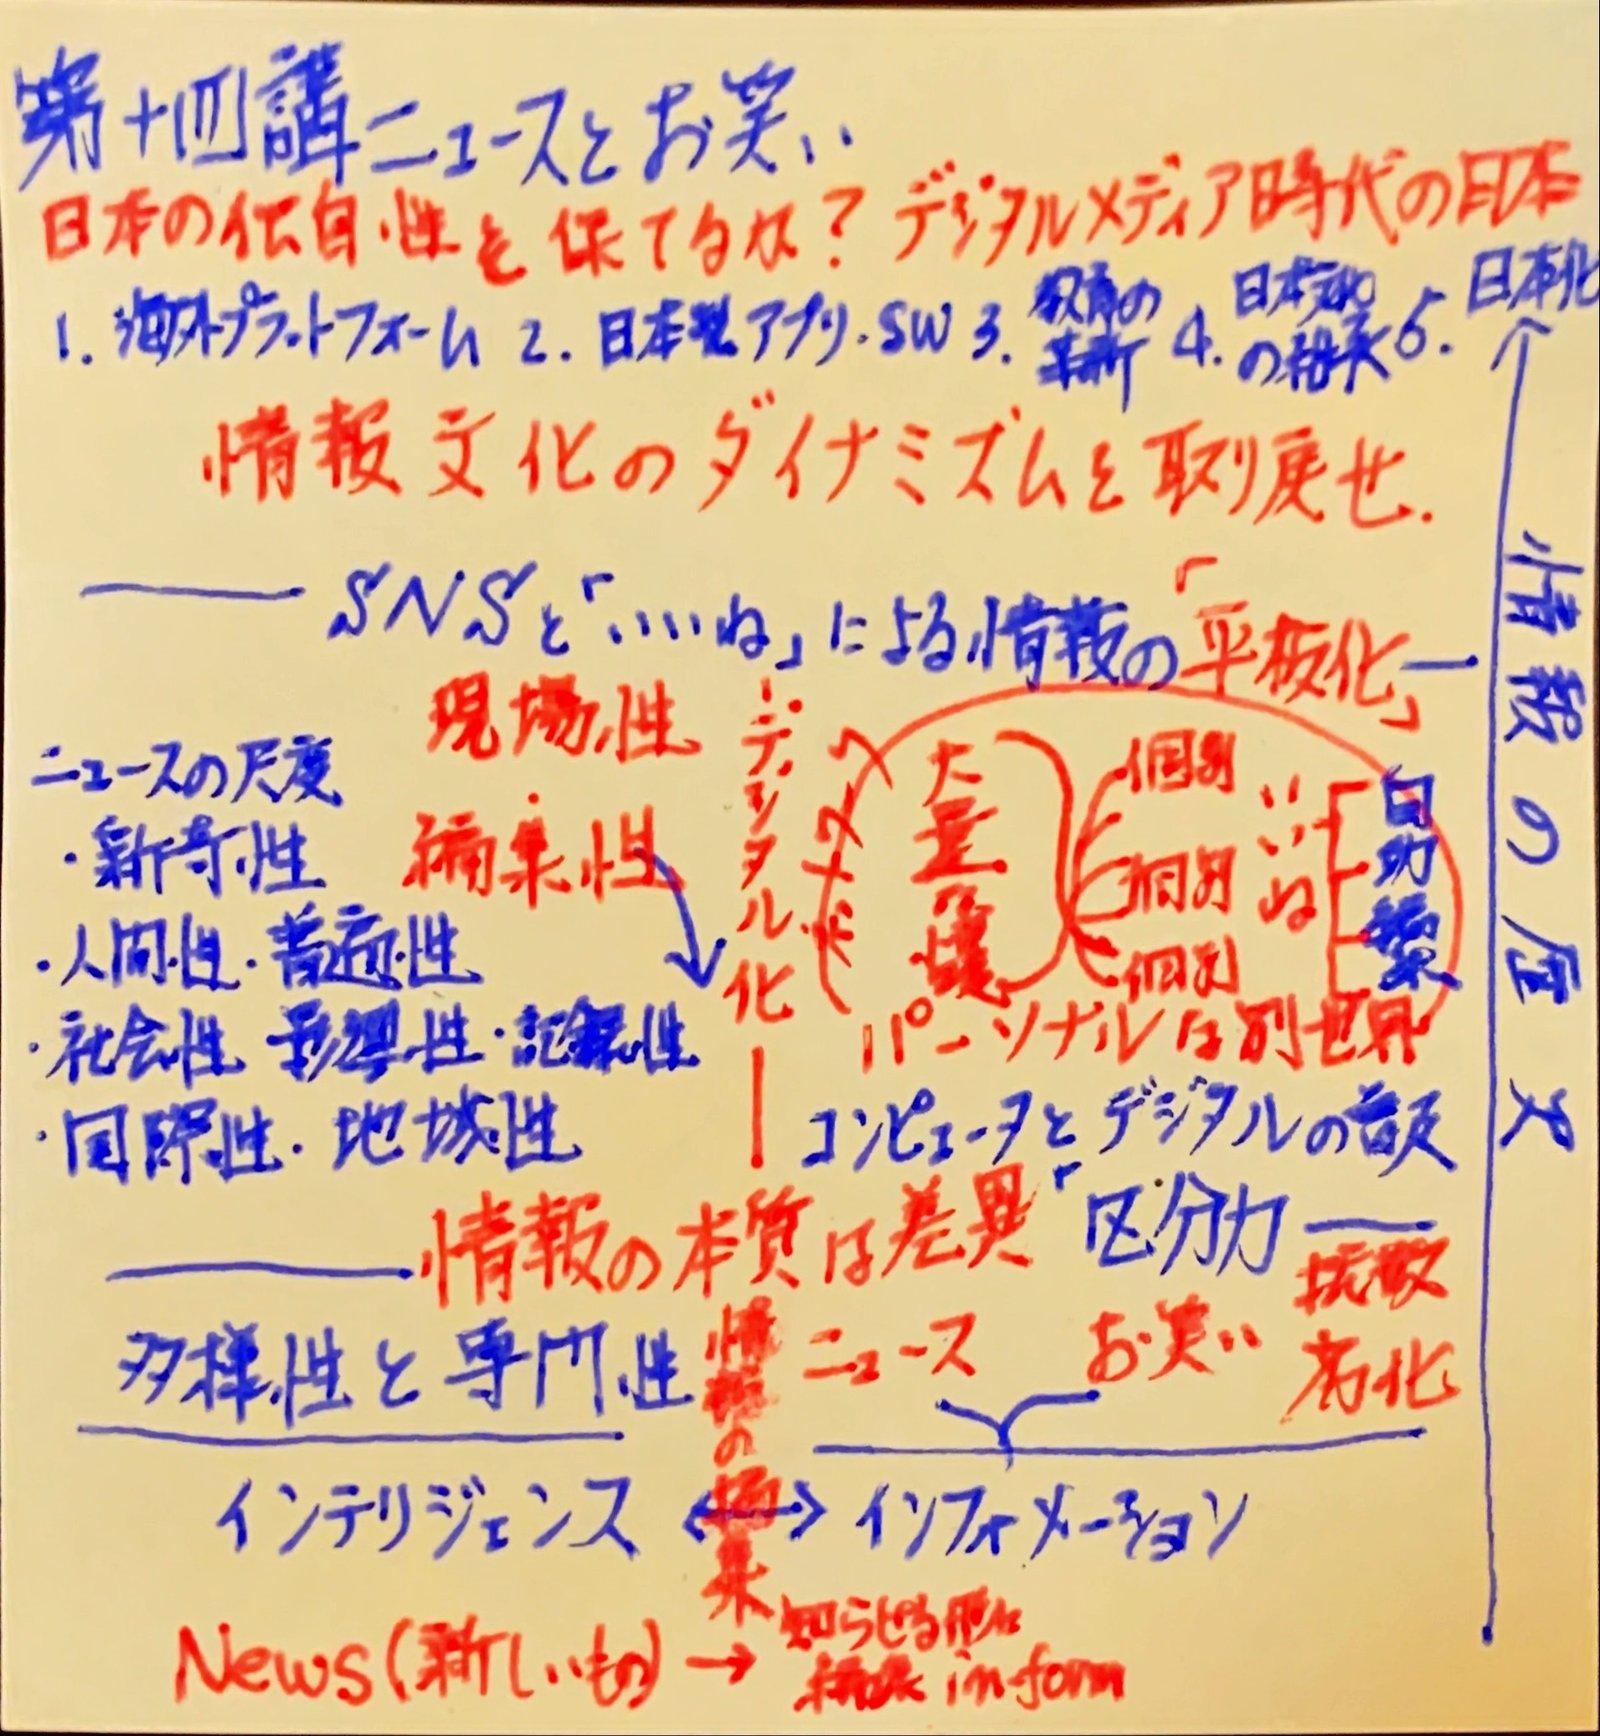 第十四講 ニュースとお笑い
日本の伝自性を保てるか？ デジタルメディア時代の日本
1. 海外プラットフォーム 2. 日本製アプリ・SW 3. 教育の革新 4. 日本文化の継承 5. 日本化
情報文化のダイナミズムを取り戻せ.
SNSと「いいね」による情報の「平板化」
情報の歴史
現場性
編集性
デジタル化
ニュースの尺度
・新奇性
・人間性・普遍性
・社会性 影響性・記録性
・国際性・地域性
大量の
個別
個別
個別
いいね
自動編集
パーソナルは別世界
コンピュータとデジタルの
情報の本質は差異「区分力
多様性と専門性
情報の編集
ニュース
お笑い
インテリジェンス ↔ インフォメーション
News(新しいもの) → 知らせる形に編集 in-form